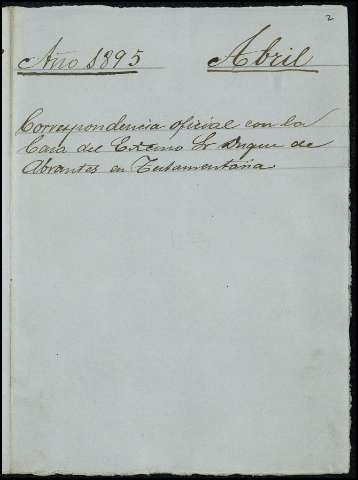 2
Año 1895 Abril
Correspondencia oficial con la
Casa del Excmo Sr Duque de
Abrantes en Testamentaria